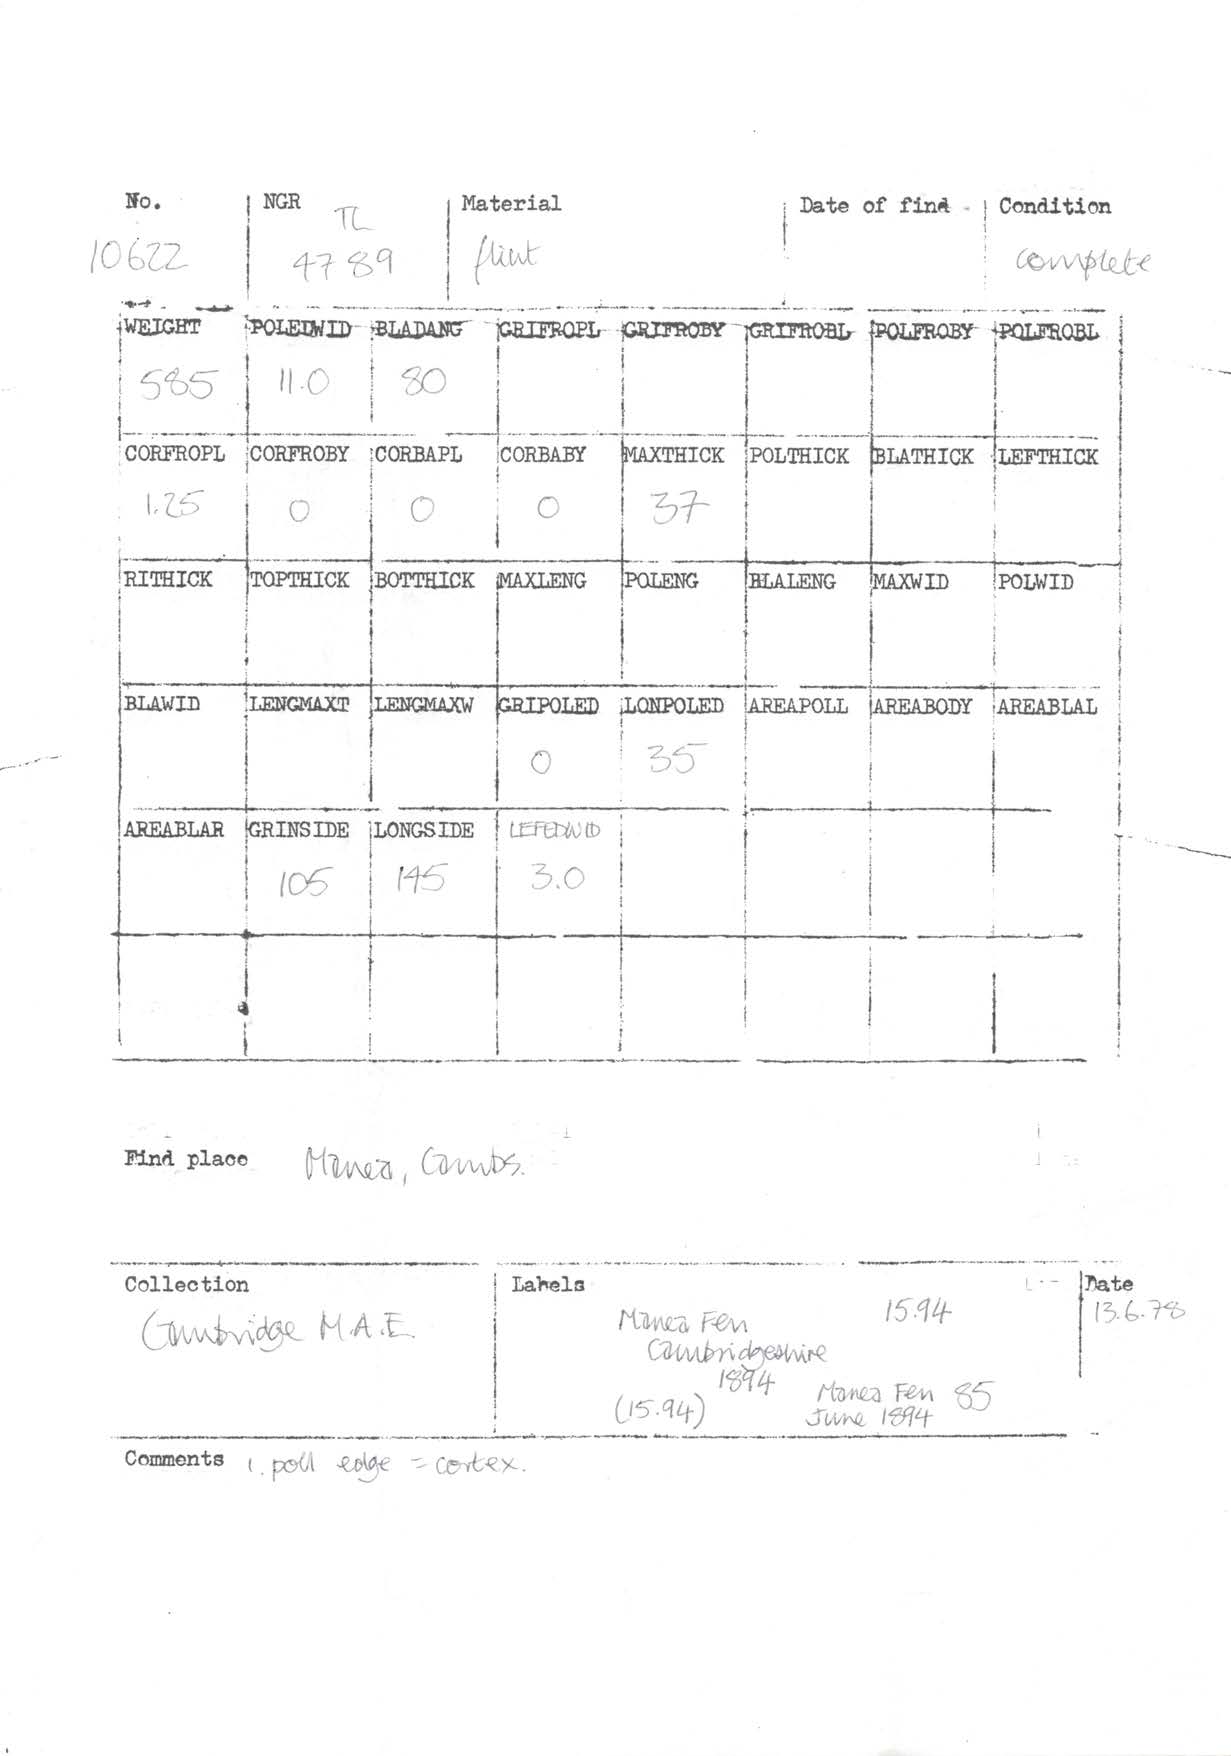 No. NGR Material Date of find Condition
TL
10622 47 89 flint complete
WEIGHT POLEDWID BLADANG GRIFROPL GRIFROBY GRIFROBL POLFROBY POLFROBL
585 11.0 80
CORFROPL CORFROBY CORBAPL CORBABY MAXTHICK POLTHICK BLATHICK LEFTHICK
1.25 0 0 0 37
RITHICK TOPTHICK BOTTHICK MAXLENG POLENG BLALENG MAXWID POLWID
BLAWID LENGMAXT LENGMAXW GRIPOLED LONPOLED AREAPOLL AREABODY AREABLAL
0 35
AREABLAR GRINSIDE LONGSIDE LEFEDWID
105 145 3.0
Find place Manea, Cambs.
Collection Labels Date
Cambridge M.A.E. Manea Fen 15.94 13.6.78
Cambridgeshire
1894
(15.94) Manea Fen 85
June 1894
Comments 1. poll edge = cortex.